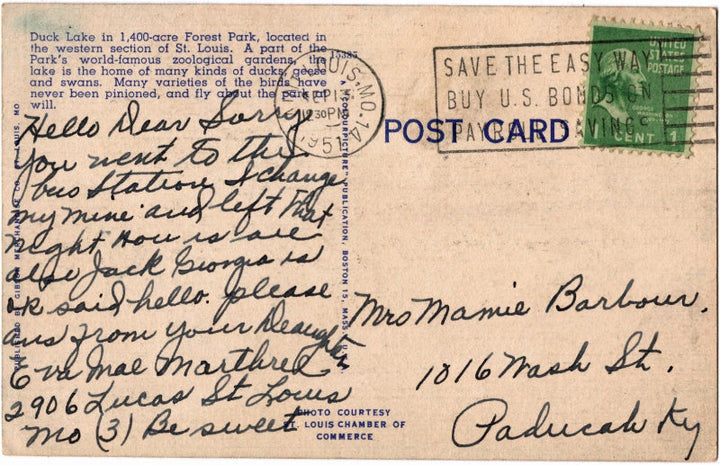 Duck Lake in 1,400-acre Forest Park, located in
the western section of St. Louis. A part of the
Park's world-famous zoological gardens, the
lake is the home of many kinds of ducks, geese
and swans. Many varieties of the birds have
never been pinioned, and fly about the park at
will.
15385
ST. LOUIS, MO. 14
SEP 13
12 30 PM
1951
SAVE THE EASY WAY
BUY U.S. BONDS ON
PAYROLL SAVINGS
UNITED
STATES
POSTAGE
GEORGE
1 CENT 1
POST CARD
Hello Dear Sorry
you went to the
bus Station I change
my mine and left that
night How is are
also Jack Georgia is
ok said hello. please
ans from your Deaughter
Eva Mae Marthrel
2906 Lucas St Louis
Mo (3) Be sweet
PUBLISHED BY GIBSON MERCHANDISE CO., ST. LOUIS, MO
"COLORPICTURE" PUBLICATION, BOSTON 15, MASS.
Mrs Mamie Barbour.
1016 Wash St.
Paducah Ky
PHOTO COURTESY
ST. LOUIS CHAMBER OF
COMMERCE